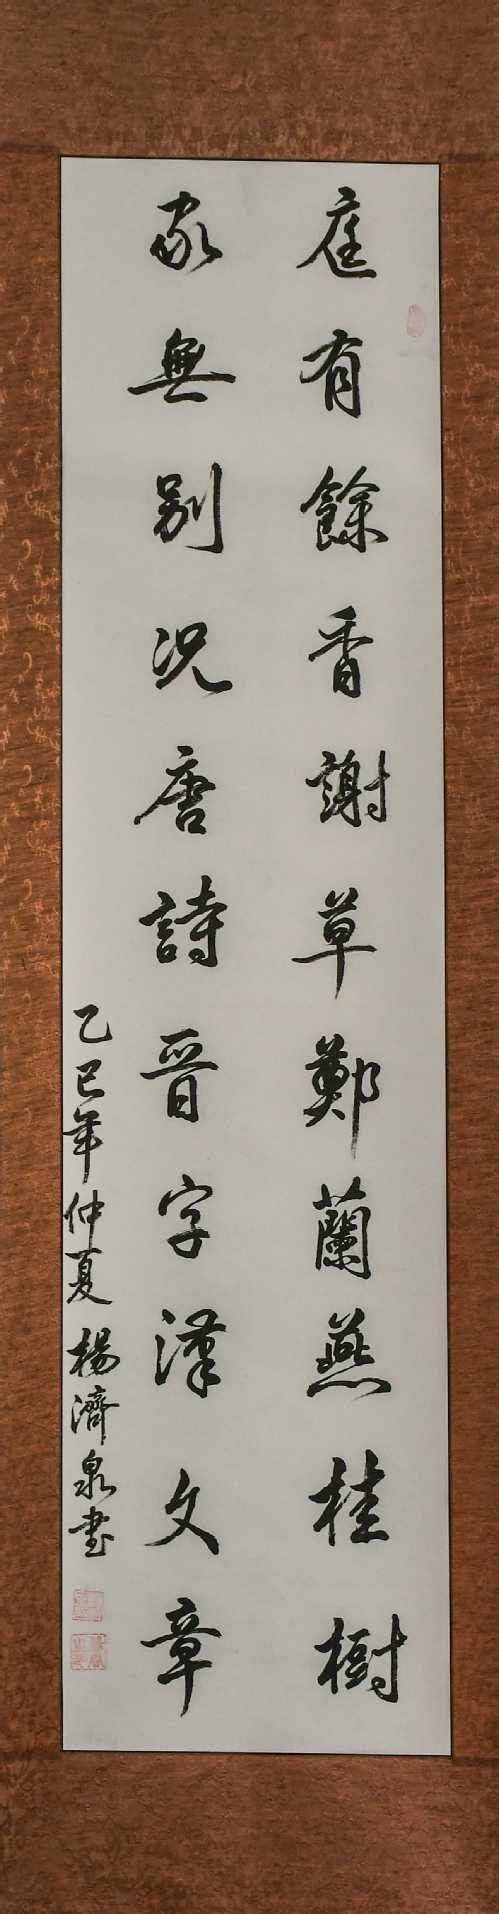 庭有餘香謝草鄭蘭燕桂樹
家無別況唐詩晋字漢文章
乙巳年仲夏楊濟泉書